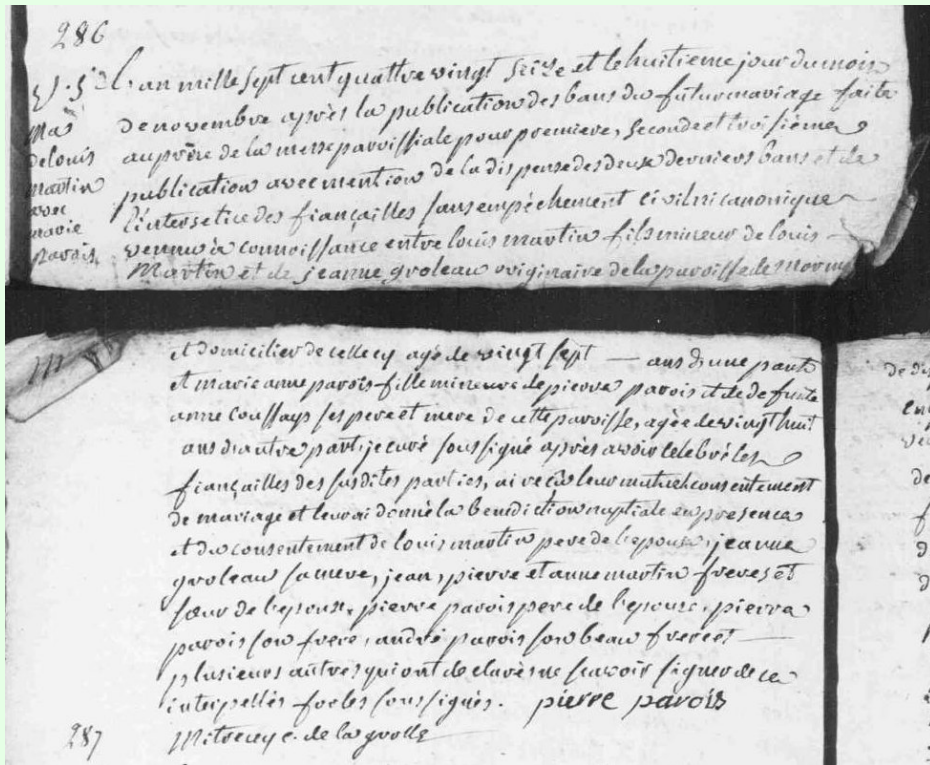 286
L'an mille sept cent quattre vingt seize et le huitieme jour du mois
de novembre après la publication des bans du futur mariage faite
au prône de la messe paroissiale pour premiere, seconde et troisième
publication avec mention de la dispense des deux derniers bans et de
l'interstice des fiançailles sans empêchement civil ni canonique
venu à connoissance entre louis martin fils mineur de louis
Martin et de jeanne groleau originaire de la paroisse de
Mar
de louis
martin
avec
marie
parois
et domicilier de celle cy agé de vingt sept — ans d'une part
et marie anne parois fille mineure de pierre parois et de defunte
anne coussays ses pere et mere de cette paroisse, agée de vingt huit
ans d'autre part, je curé soussigné après avoir celebré les
fiançailles des susdites parties, ai reçu leur mutuel consentement
de mariage et leur ai donné la benediction nuptiale en presence
et du consentement de louis martin pere de l'epoux, jeanne
groleau sa mere, jean, pierre et anne martin freres et
sœur de l'epoux, pierre parois pere de l'epouse, pierre
parois son frere, andré parois son beau frere et —
plusieurs autres qui ont declarés ne scavoir signer de ce
interpellés fors les soussignés. pierre parois
c. de la grolle
287
de